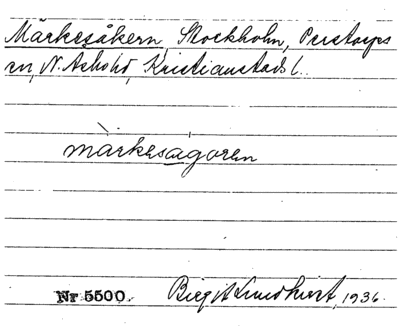 Märkesåkern, Stockholm, Perstorps
sn, N. Åsbo hd, Kristianstads l.
màrkesagoren
Nr 5500. Birgit Lundkvist, 1936.